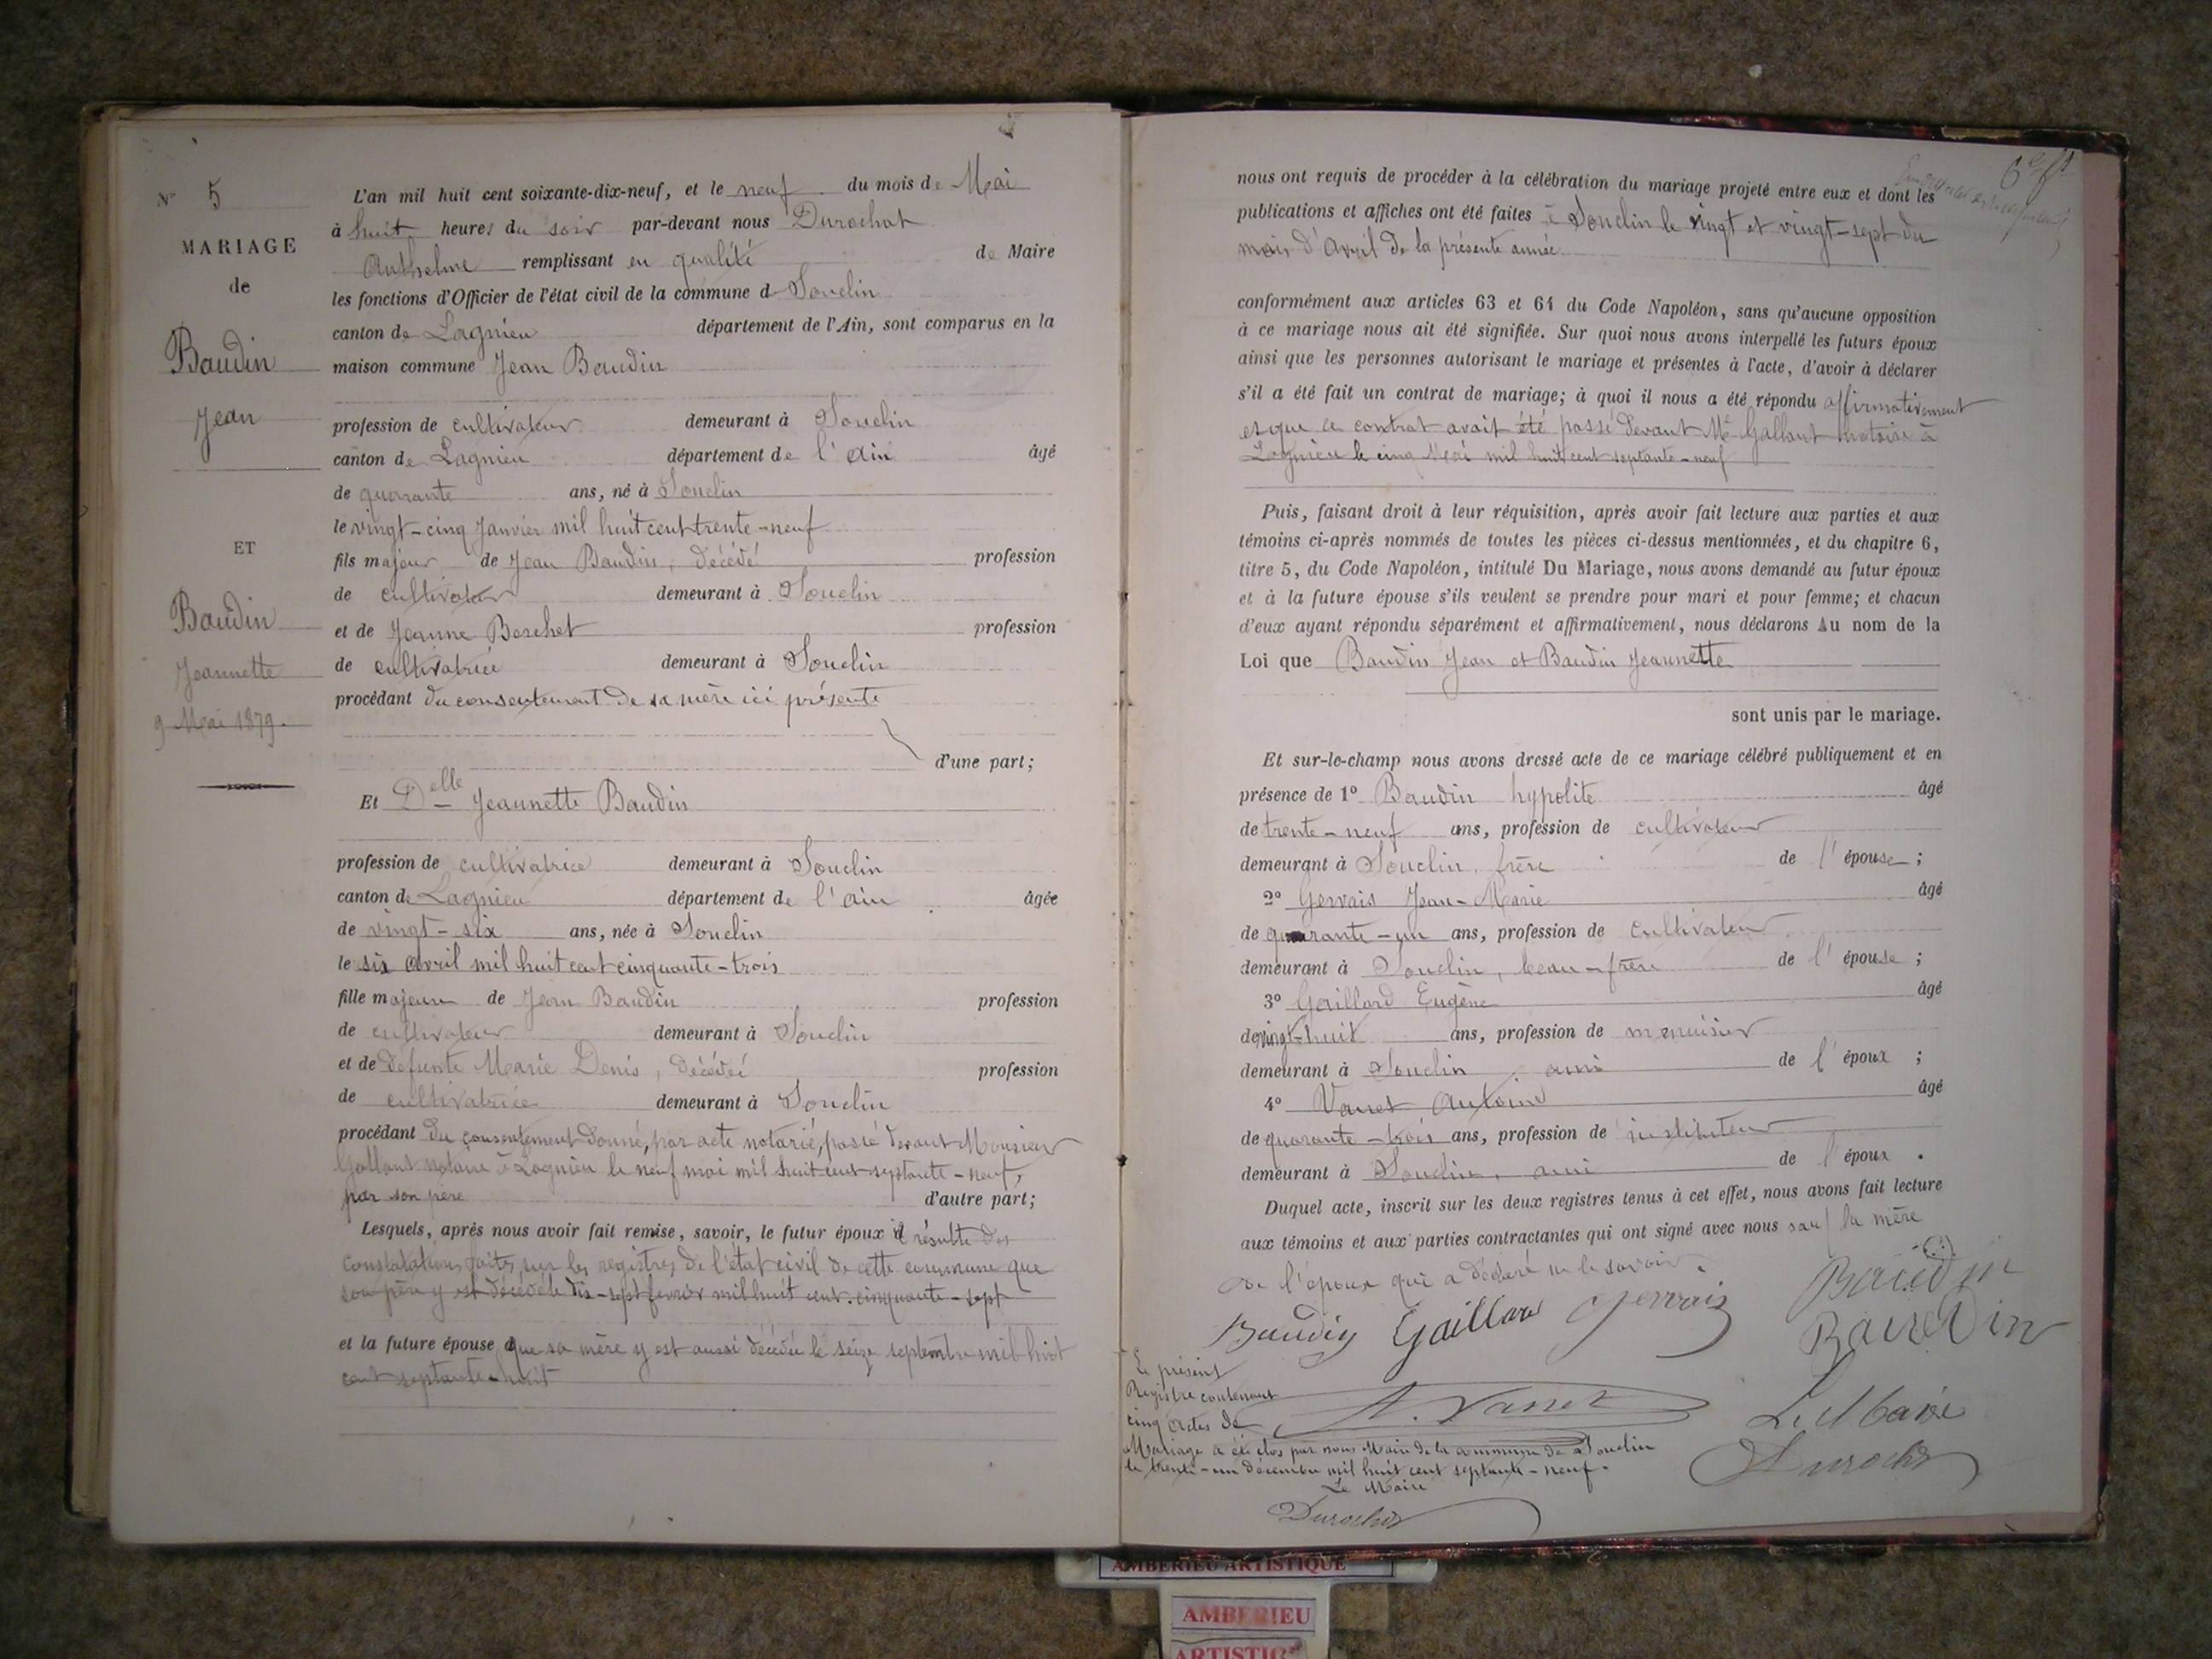 N° 5
MARIAGE
de
Baudin
Jean
ET
Baudin
Jeannette
9 Mai 1879.
L'an mil huit cent soixante-dix-neuf, et le neuf du mois de Mai
à huit heures du soir par-devant nous Durochat
Anthelme remplissant en qualité de Maire
les fonctions d'Officier de l'état civil de la commune d Souclin
canton de Lagnieu département de l'Ain, sont comparus en la
maison commune Jean Baudin
profession de cultivateur demeurant à Souclin
canton de Lagnieu département de l'ain âgé
de quarante ans, né à Souclin
le vingt-cinq Janvier mil huit cent trente-neuf
fils majeur de Jean Baudin, décédé profession
de cultivateur demeurant à Souclin
et de Jeanne Berchet profession
de cultivatrice demeurant à Souclin
procédant du consentement de sa mère ici présente
d'une part;
Et Delle Jeannette Baudin
profession de cultivatrice demeurant à Souclin
canton de Lagnieu département de l'ain âgée
de vingt-six ans, née à Souclin
le six avril mil huit cent cinquante-trois
fille majeure de Jean Baudin profession
de cultivateur demeurant à Souclin
et de défunte Marie Denis, décédée profession
de cultivatrice demeurant à Souclin
procédant du consentement donné, par acte notarié, passé devant Monsieur
Gallant notaire à Lagnieu le neuf mai mil huit cent septante-neuf,
par son père d'autre part;
Lesquels, après nous avoir fait remise, savoir, le futur époux il résulte des
constatations faites sur les registres de l'état civil de cette commune que
son père y est décédé le dix-sept fevrier mil huit cent cinquante-sept
et la future épouse que sa mère y est aussi décédée le seize septembre mil huit
cent septante-huit
6e ft
nous ont requis de procéder à la célébration du mariage projeté entre eux et dont les
publications et affiches ont été faites à Souclin le vingt et vingt-sept du
mois d'avril de la présente année
conformément aux articles 63 et 64 du Code Napoléon, sans qu'aucune opposition
à ce mariage nous ait été signifiée. Sur quoi nous avons interpellé les futurs époux
ainsi que les personnes autorisant le mariage et présentes à l'acte, d'avoir à déclarer
s'il a été fait un contrat de mariage; à quoi il nous a été répondu affirmativement
et que ce contrat avait été passé devant Me Gallant notaire à
Lagnieu le cinq Mai mil huit cent septante-neuf
Puis, faisant droit à leur réquisition, après avoir fait lecture aux parties et aux
témoins ci-après nommés de toutes les pièces ci-dessus mentionnées, et du chapitre 6,
titre 5, du Code Napoléon, intitulé Du Mariage, nous avons demandé au futur époux
et à la future épouse s'ils veulent se prendre pour mari et pour femme; et chacun
d'eux ayant répondu séparément et affirmativement, nous déclarons Au nom de la
Loi que Baudin Jean et Baudin Jeannette
sont unis par le mariage.
Et sur-le-champ nous avons dressé acte de ce mariage célébré publiquement et en
présence de 1° Baudin hypolite âgé
de trente-neuf ans, profession de cultivateur
demeurant à Souclin, frère de l'épouse;
2° Gervais Jean-Marie âgé
de quarante-un ans, profession de cultivateur
demeurant à Souclin, beau-frère de l'épouse;
3° Gaillard Eugène âgé
de vingt-huit ans, profession de menuisier
demeurant à Souclin, ami de l'époux;
4° Vanet Antoine âgé
de quarante-trois ans, profession de instituteur
demeurant à Souclin, ami de l'époux.
Duquel acte, inscrit sur les deux registres tenus à cet effet, nous avons fait lecture
aux témoins et aux parties contractantes qui ont signé avec nous sauf la mère
de l'époux qui a déclaré ne le savoir.
Baudin
Baudin Gaillard Gervais
Baudin
A. Vanet
Le Maire
Durochat
Le présent
Registre contenant
cinq actes de
Mariage a été clos par nous Maire de la commune de Souclin
le trente-un décembre mil huit cent septante-neuf.
Le Maire
Durochat
AMBERIEU ARTISTIQUE
AMBERIEU
ARTISTIQ